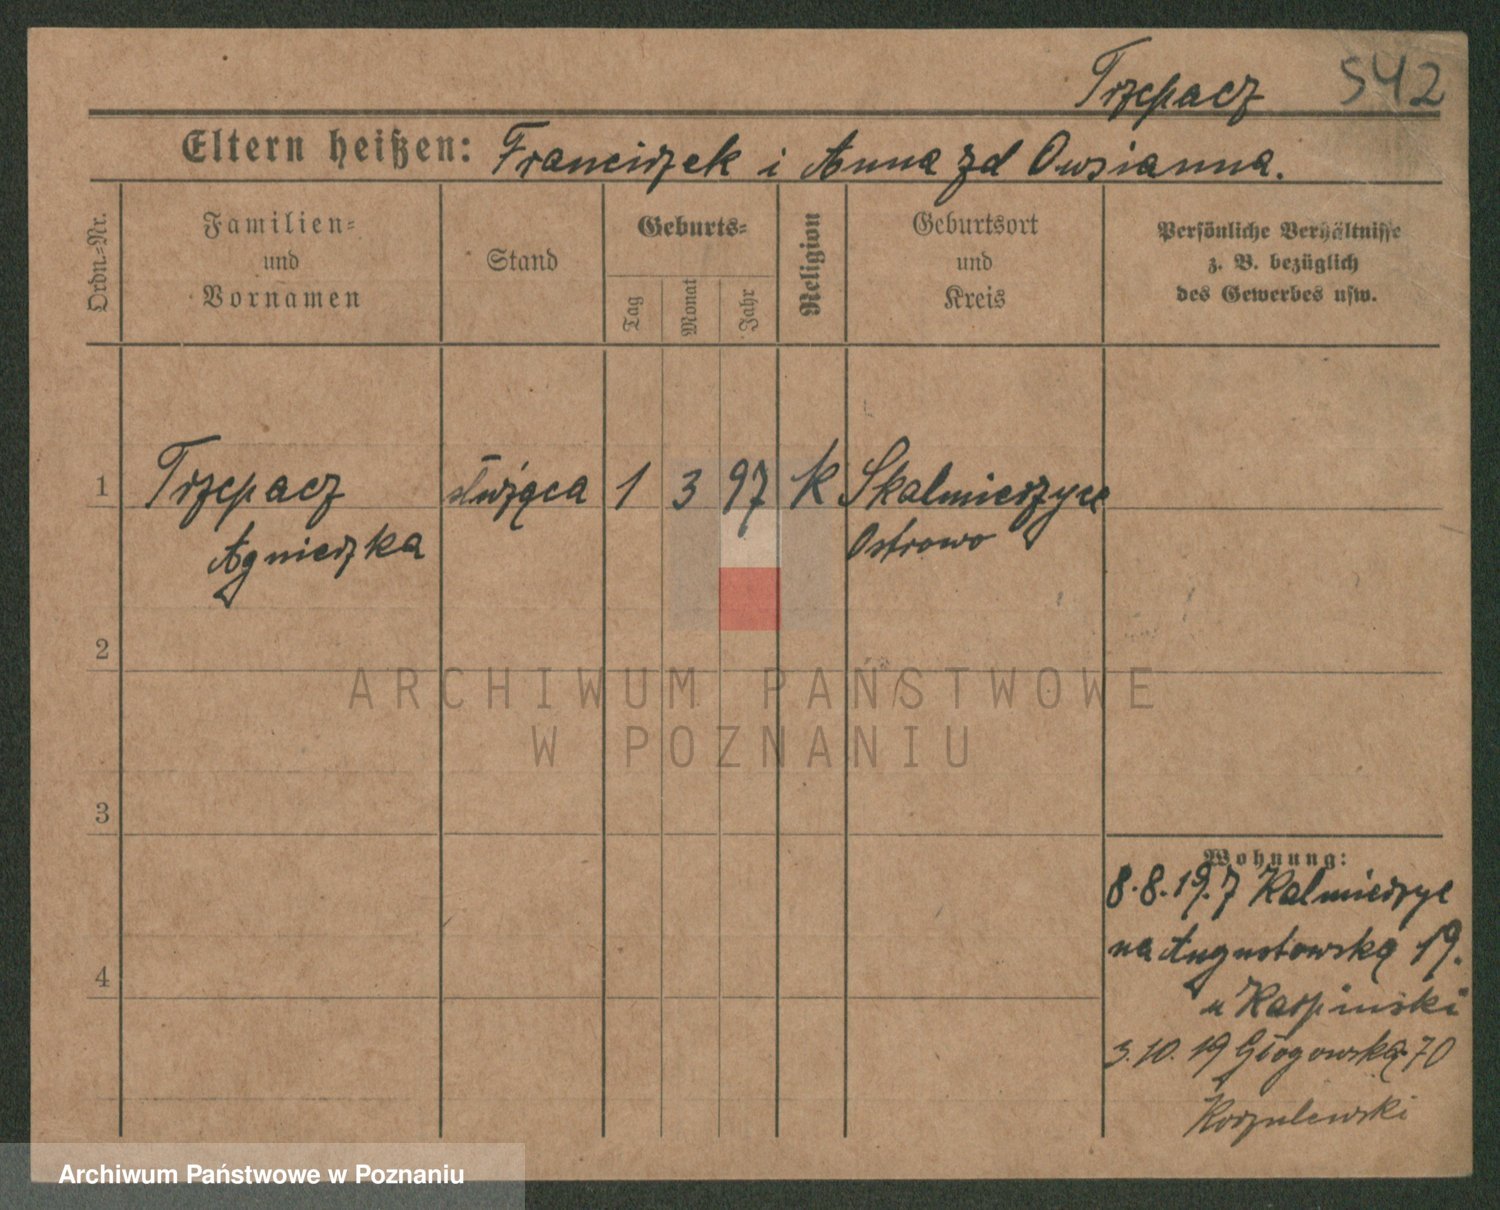 Trzepacz 542
Eltern heißen: Franciszek i Anna zd Owsianna.
Ordn.=Nr.
Familien=
und
Vornamen
Stand
Geburts=
Tag
Monat
Jahr
Religion
Geburtsort
und
Kreis
Persönliche Verhältnisse
z. B. bezüglich
des Gewerbes usw.
1 Trzepacz służąca 1 3 97 K Skalmierzyce
Agnieszka Ostrowo
2
3
4
Wohnung:
8.8.19. z Kalmierzyc
na Augustowską 19.
u Karpinski
3.10.19 Głogowska 70
Koszulewski
ARCHIWUM PAŃSTWOWE
W POZNANIU
Archiwum Państwowe w Poznaniu